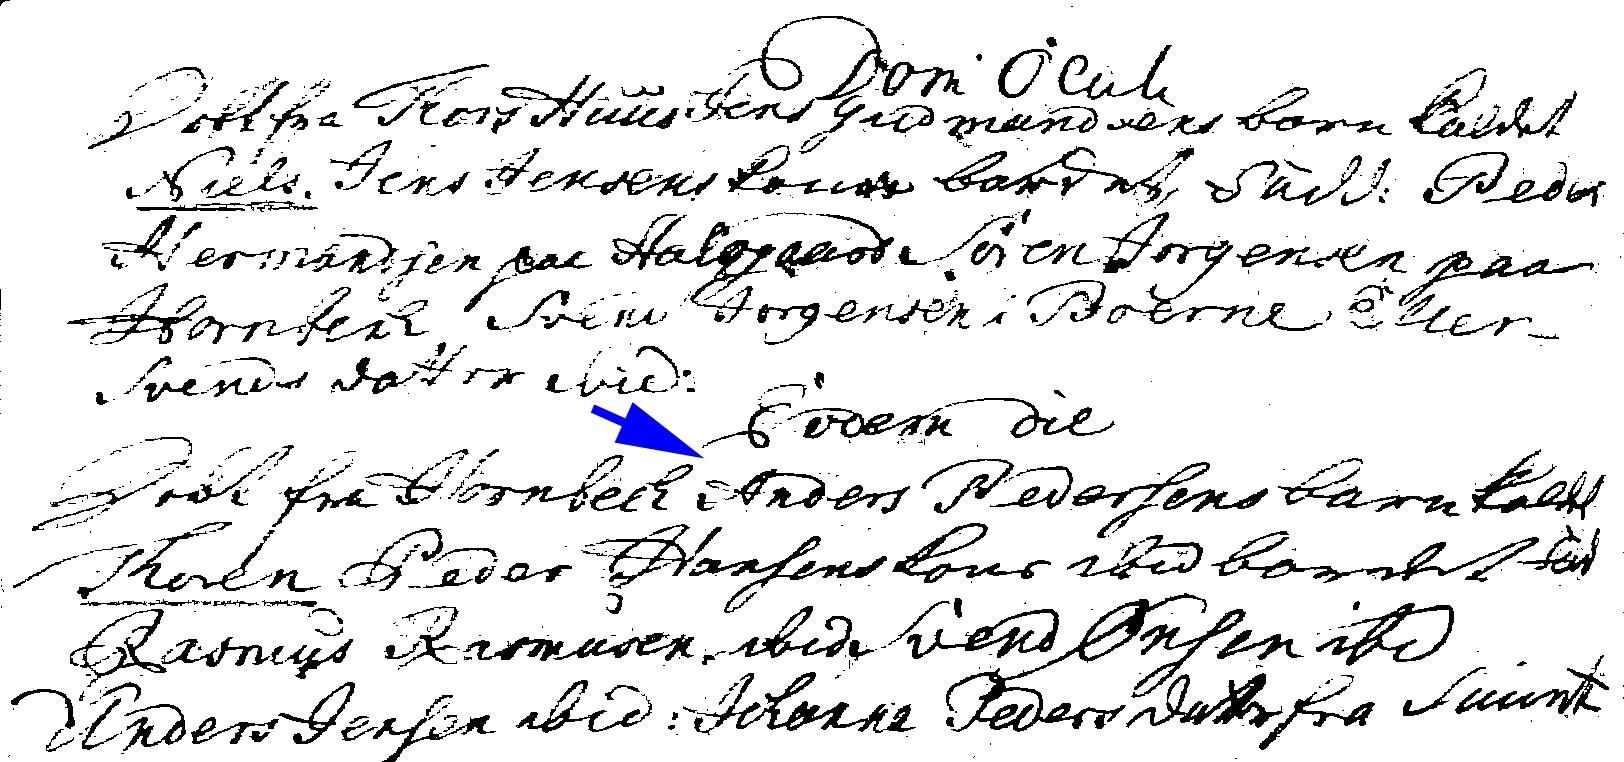 Dom Oculi
Døbt fra Thors Huus Jens Gudmundsens barn kaldet
Niels. Jens Jensens kone bar det, Fadd: Peder
Hermandsen paa Halggaard Sören Jörgensen paa
Hornbech Svend Jörgensen i Boerne Eller
Svends datter ibid:
Eodem die
Døbt fra Hornbech Anders Pedersens barn kaldt
Thoren Peder Hansens kone ibid bar det Fad
Rasmus Rasmusen ibid Svend Onsen ibid
Anders Jensen ibid: Johanna Peders datter fra